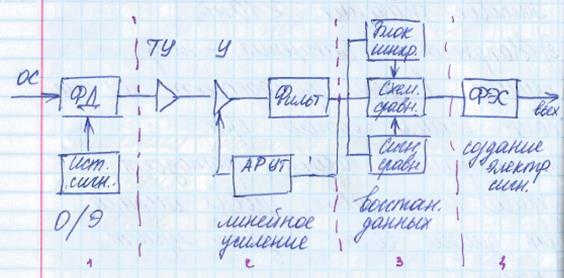 ОС
ФД
Ист.
сигн.
О/Э
ТУ
У
Фильт
АРУТ
линейное
усиление
Блок
синхр.
Схем.
сравн.
Сигн.
сравн
восстан.
данных
ФЭС
вых.
создание
электр.
сигн.
1
2
3
4